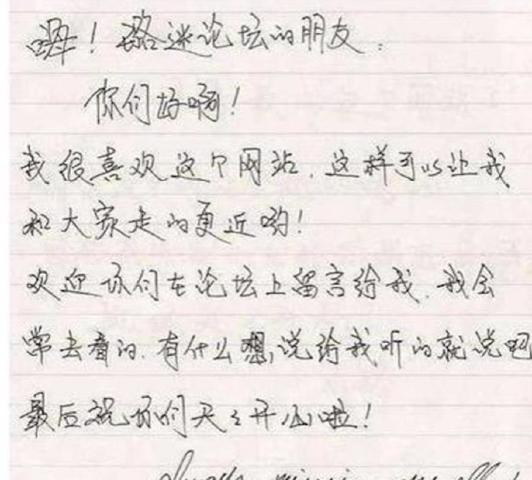 嗨！路迷论坛的朋友：
你们好啊！
我很喜欢这个网站，这样可以让我
和大家走的更近哟！
欢迎你们在论坛上留言给我，我会
常去看的，有什么想说给我听的就说吧
最后祝你们天天开心啦！